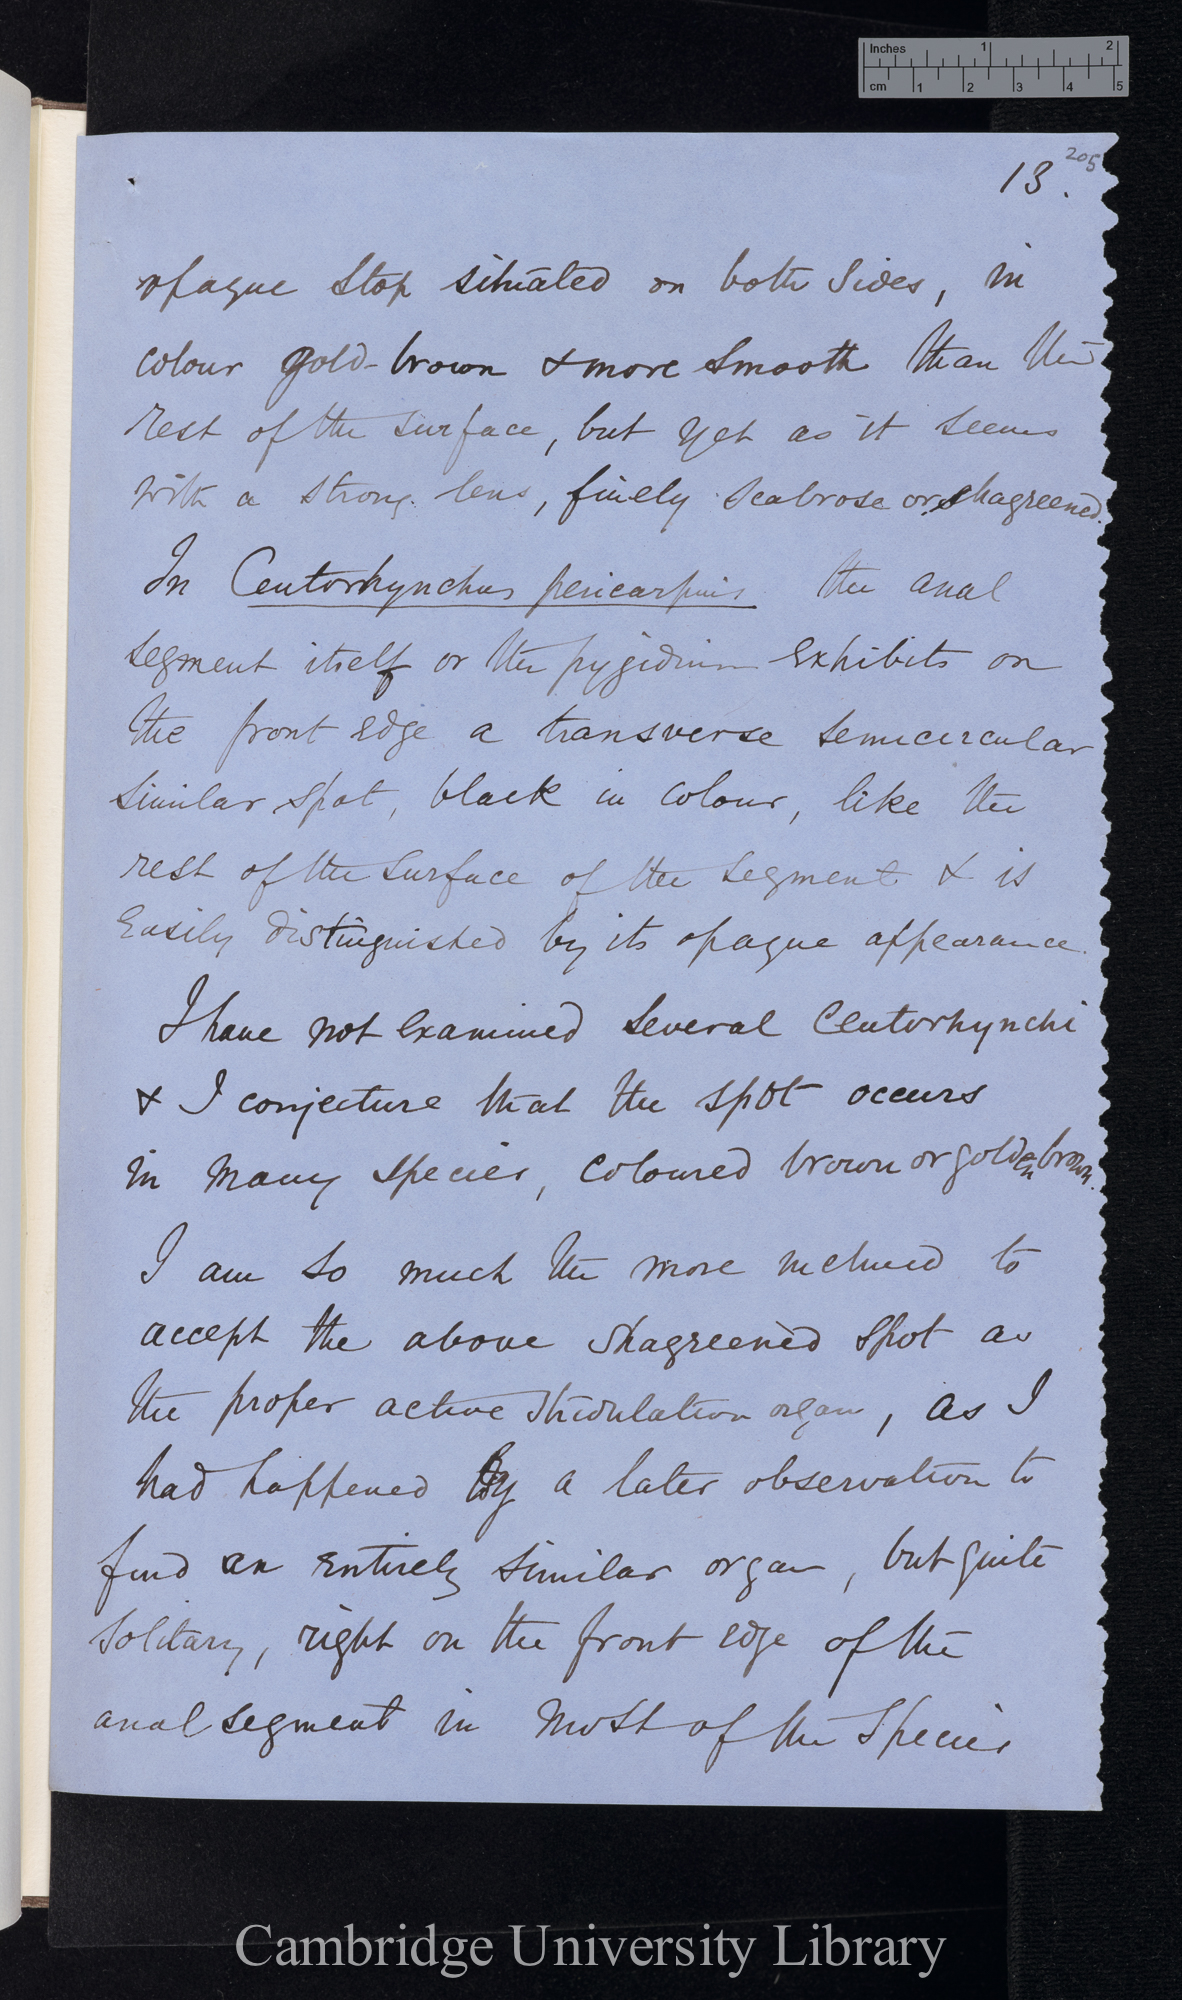 Inches 1 2
cm 1 2 3 4 5
205
13.
opaque stop situated on both sides, in
colour gold-brown & more smooth than the
rest of the surface, but yet as it seems
with a strong lens, finely scabrose or shagreened.
In Ceutorhynchus pericarpius the anal
segment itself or the pygidium exhibits on
the front edge a transverse semicircular
similar spot, black in colour, like the
rest of the surface of the segment & is
easily distinguished by its opaque appearance.
I have not examined several Ceutorhynchi
& I conjecture that the spot occurs
in many species, coloured brown or golden brown.
I am so much the more inclined to
accept the above shagreened spot as
the proper active stridulation organ, as I
had happened by a later observation to
find an entirely similar organ, but quite
solitary, right on the front edge of the
anal segment in most of the species
Cambridge University Library